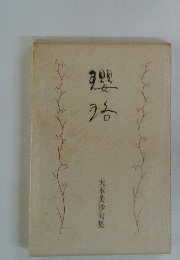 瓔珞
大木美沙句集